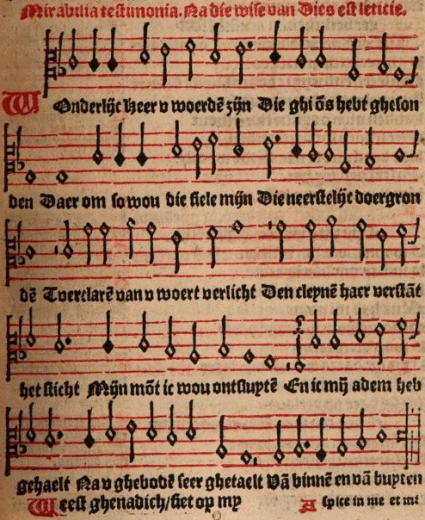 Mirabilia testimonia. Na die wise van Dies est leticie.
WOnderlijc Heer v woerdē zijn Die ghi ōs hebt gheson
den Daer om so wou die siele mijn Die neerstelijc doergron
dē Tverclarē van v woert verlicht Den cleynē haer verstāt
het sticht Mijn mōt ic wou ontsluytē En ic mij adem heb
gehaelt Na v ghebodē seer ghetaelt Vā binnē en vā buyten
Weest ghenadich/siet op my Aspice in me et mi